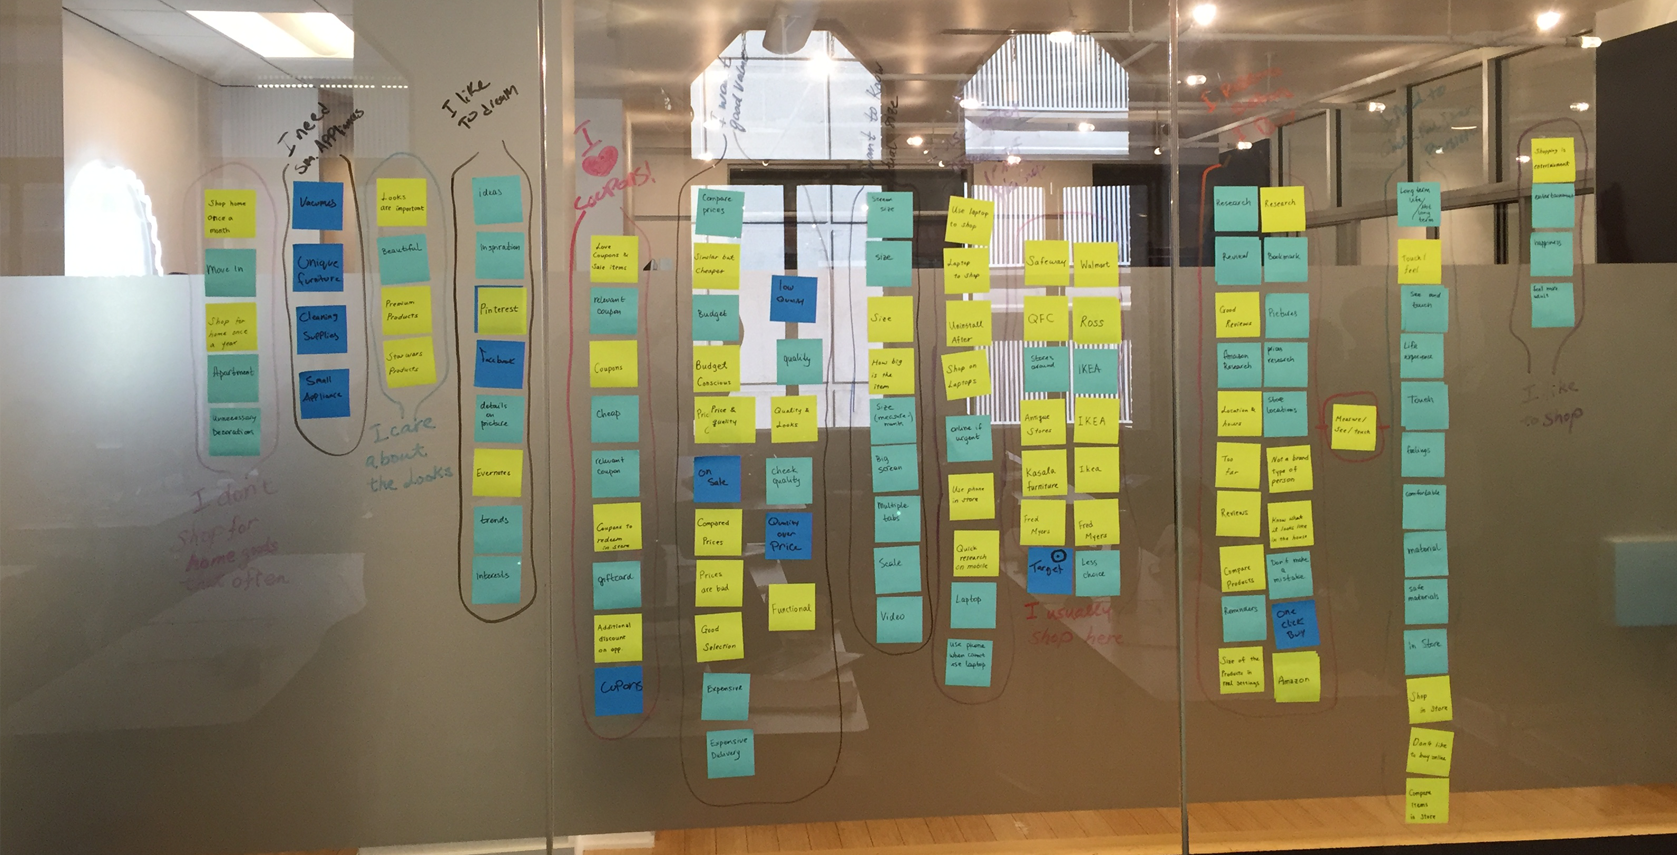 Shop home
once a
month
Move In
Shop for
home once
a year
Apartment
Unnecessary
Decoration
I don't
shop for
home goods
that often
I need
sm. Appliances
Vacuums
Unique
furniture
Cleaning
Supplies
Small
Appliance
Looks
are important
Beautiful
Premium
Products
Star wars
Products
I care
about
the Looks
I like
to dream
ideas
Inspiration
Pinterest
Facebook
details
on
picture
Evernotes
trends
Interests
I
coupons!
Love
Coupons &
Sale items
relevant
coupon
Coupons
Cheap
relevant
coupon
Coupons to
redeem
in store
giftcard
Additional
discount
on app
Cupons
I want
good value
Compare
prices
Similar but
Cheaper
Budget
Budget
Conscious
Price &
quality
On
Sale
Compared
Prices
Prices
are bad
Good
Selection
Expensive
Expensive
Delivery
low
quality
quality
Quality &
Looks
Check
quality
Quality
over
Price
Functional
want to know
size
Screen
size
size
Size
How big
is the
item
Size
Big
screen
Multiple
tabs
Scale
Video
Use laptop
to shop
Laptop
to shop
Uninstall
After
Shop on
Laptops
online if
urgent
Use phone
in store
Quick
research
on mobile
Laptop
Use phone
when cannot
use laptop
Safeway
QFC
Stores
around
Antique
Stores
Kasala
furniture
Fred
Myers
Target
Walmart
Ross
IKEA
IKEA
Ikea
Fred
Myers
Less
choice
I usually
shop here
Research
Review
Good
Reviews
Amazon
Research
Location &
Aware
Too
far
Reviews
Compare
Products
Reminders
Size of the
Products in
real settings
Research
Bookmark
Pictures
prior
research
Store
locations
Not a
brand
type of
person
Know what
it looks like
in the house
Don't make
a
mistake
One
Click
Buy
Amazon
Measure/
See/touch
Long term
Touch/
feel
See and
touch
Life
experience
Touch
feelings
comfortable
material
safe
materials
In Store
Shop
in Store
Don't like
to buy online
Compare
Items
in Store
Shopping is
entertainment
entertainment
happiness
I like
to shop